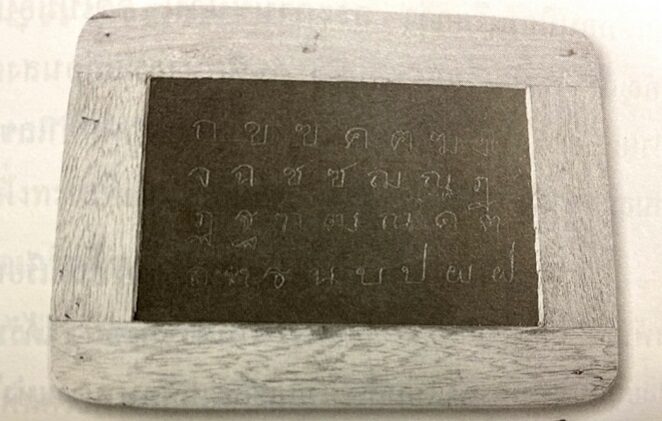 ก ข ฃ ค ฅ ฆ ง
จ ฉ ช ซ ฌ ญ ฎ
ฏ ฐ ฑ ฒ ณ ด ต
ถ ท ธ น บ ป ผ ฝ